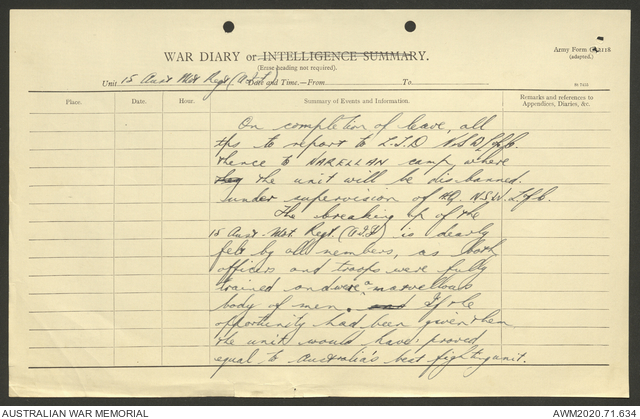 WAR DIARY or INTELLIGENCE SUMMARY.
(Erase heading not required).
Army Form C. 2118
(adapted.)
Unit 15 Aust Mot Regt (A.I.F.) Date and Time.—From To
Place. Date. Hour. Summary of Events and Information. Remarks and references to Appendices, Diaries, &c.
On completion of leave, all
tps to report to L.T.D N.S.W. L of C.
thence to NARELLAN camp where
they the unit will be disbanned.
under supervision of HQ. N.S.W. L of C.
The breaking up of the
15 Aust. Mot. Regt. (A.I.F) is dearly
felt by all members, as both
officers and troops were fully
trained and were a marvellous
body of men. and If the
opportunity had been given them
the unit would have proved
equal to Australia's best fighting unit.
AUSTRALIAN WAR MEMORIAL
AWM2020.71.634